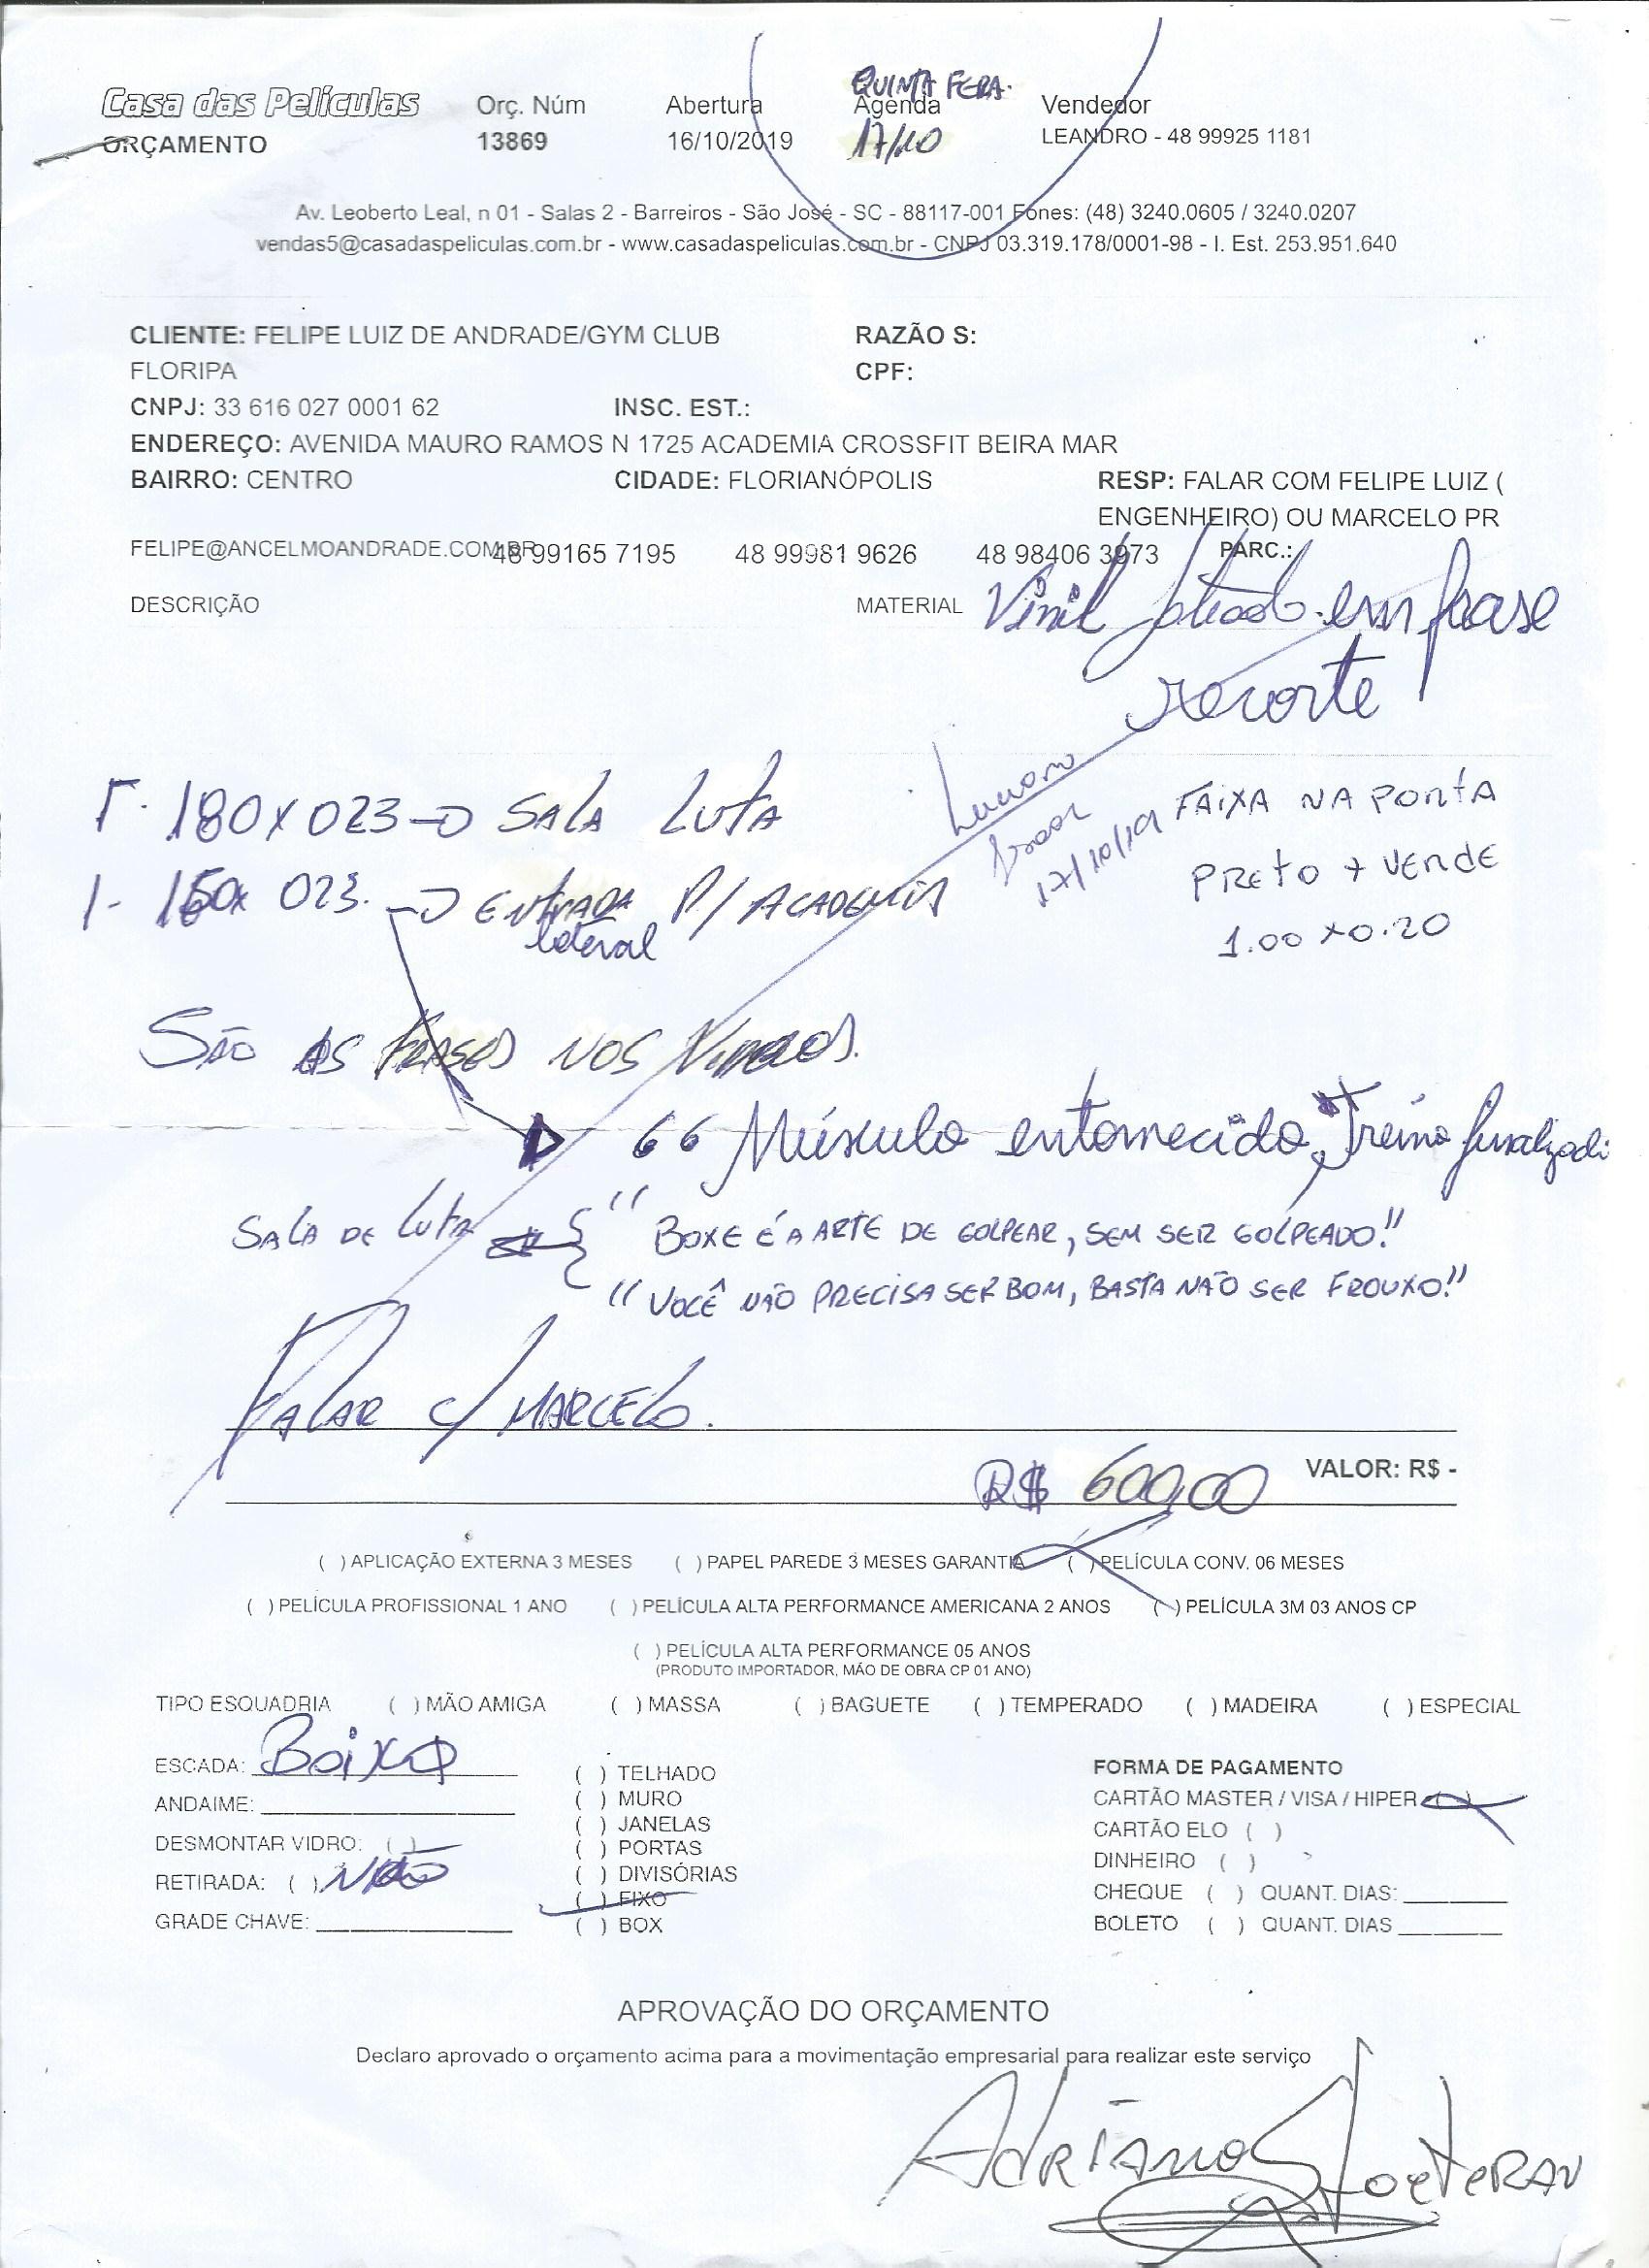 QUINTA FERA.
Casa das Películas Orç. Núm Abertura Agenda Vendedor
ORÇAMENTO 13869 16/10/2019 17/10 LEANDRO - 48 99925 1181
Av. Leoberto Leal, n 01 - Salas 2 - Barreiros - São José - SC - 88117-001 Fones: (48) 3240.0605 / 3240.0207
vendas5@casadaspeliculas.com.br - www.casadaspeliculas.com.br - CNPJ 03.319.178/0001-98 - I. Est. 253.951.640
CLIENTE: FELIPE LUIZ DE ANDRADE/GYM CLUB RAZÃO S:
FLORIPA CPF:
CNPJ: 33 616 027 0001 62 INSC. EST.:
ENDEREÇO: AVENIDA MAURO RAMOS N 1725 ACADEMIA CROSSFIT BEIRA MAR
BAIRRO: CENTRO CIDADE: FLORIANÓPOLIS RESP: FALAR COM FELIPE LUIZ (
ENGENHEIRO) OU MARCELO PR
FELIPE@ANCELMOANDRADE.COM.BR 48 99165 7195 48 99981 9626 48 98406 3973 PARC.:
DESCRIÇÃO MATERIAL Vinil em frase
recorte
1 - 180 x 023 → SALA LUTA
17/10/19 FAIXA NA PORTA
1 - 150 x 023. → ENTRADA P/ ACADEMIA
PRETO + VERDE
lateral
1.00 x 0.20
SÃO AS FRASES NOS VIDROS.
" Músculo entornecido, Treino finalizado
SALA DE LUTA
" BOXE É A ARTE DE GOLPEAR, SEM SER GOLPEADO!"
"VOCÊ NÃO PRECISA SER BOM, BASTA NÃO SER FROUXO!"
FALAR C/ MARCELO.
R$ 600,00 VALOR: R$ -
( ) APLICAÇÃO EXTERNA 3 MESES ( ) PAPEL PAREDE 3 MESES GARANTIA ( ) PELÍCULA CONV. 06 MESES
( ) PELÍCULA PROFISSIONAL 1 ANO ( ) PELÍCULA ALTA PERFORMANCE AMERICANA 2 ANOS ( ) PELÍCULA 3M 03 ANOS CP
( ) PELÍCULA ALTA PERFORMANCE 05 ANOS
(PRODUTO IMPORTADOR, MÃO DE OBRA CP 01 ANO)
TIPO ESQUADRIA ( ) MÃO AMIGA ( ) MASSA ( ) BAGUETE ( ) TEMPERADO ( ) MADEIRA ( ) ESPECIAL
ESCADA: Baixa
ANDAIME:
DESMONTAR VIDRO: ( )
RETIRADA: ( ) NÃO
GRADE CHAVE:
( ) TELHADO
( ) MURO
( ) JANELAS
( ) PORTAS
( ) DIVISÓRIAS
( ) FIXO
( ) BOX
FORMA DE PAGAMENTO
CARTÃO MASTER / VISA / HIPER ( )
CARTÃO ELO ( )
DINHEIRO ( )
CHEQUE ( ) QUANT. DIAS:
BOLETO ( ) QUANT. DIAS
APROVAÇÃO DO ORÇAMENTO
Declaro aprovado o orçamento acima para a movimentação empresarial para realizar este serviço
Adriano